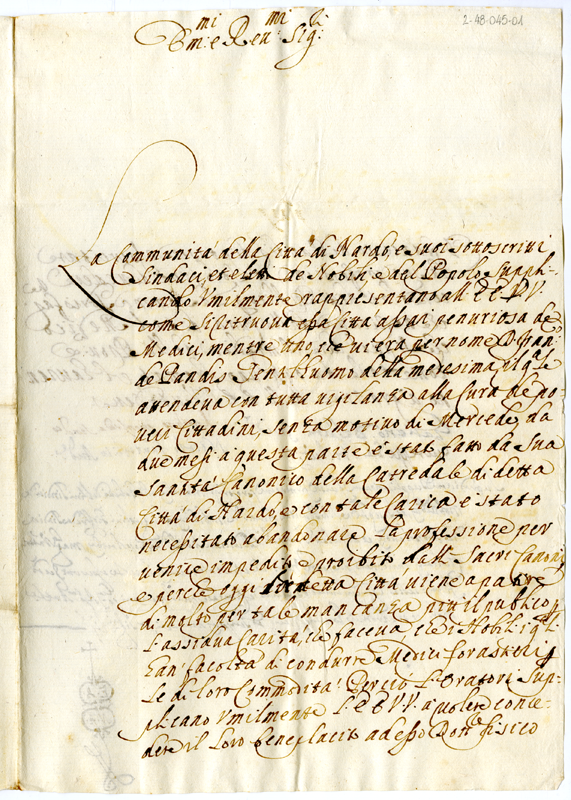 2-48-045-01
mi mi
Em: e Reu: Sig:
La Communità della Città di Nardo, e suoi sottoscritti
Sindaci, et eletti de Nobili, e del Popolo Suppli-
cando Umilmente rappresentano all' E E V V
come si ritruova essa Città assai penuriosa de
Medici, mentre uno, che vi era per nome D. Fran:
de Pandis Gentilluomo della medesima, il qle
attendeva con tutta vigilanza alla Cura de po
veri Cittadini, senza motivo di Mercede, da
due mesi a questa parte è stato fatto da Sua
Santità Canonico della Catredale di detta
Città di Nardo, e con tale Carica è stato
necessitato abandonare la professione per
venire impedito, e proibito dalli Sacri Canoni
e perche oggi detta Città viene a patire
di molto per tale mancanza più il publico p
l'assidua Carità, che faceva che i Nobili, i qli
han facoltà di condurre Medici forastieri p
le di loro Commodità. Perciò l'Oratori Sup-
plicano Umilmente l' E E V V. a volere conce-
dere il loro beneplacito ad esso Dottre fisico